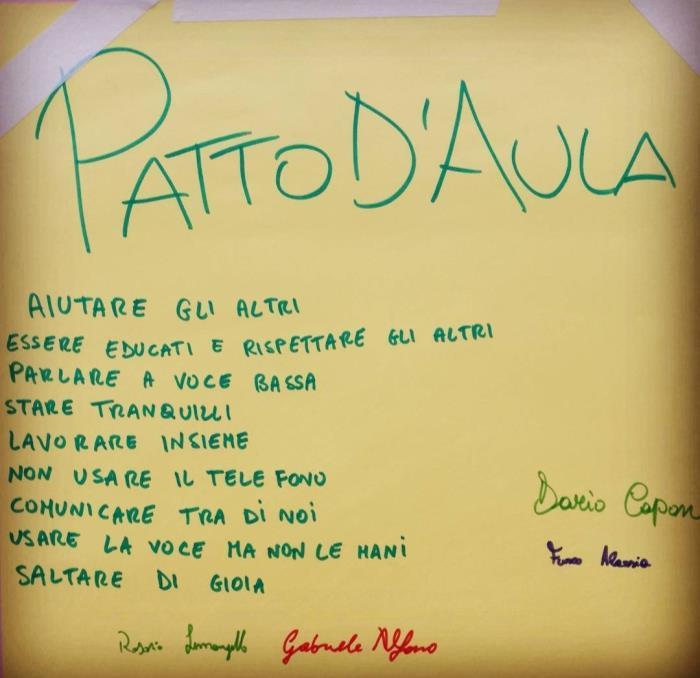 PATTO D'AULA
AIUTARE GLI ALTRI
ESSERE EDUCATI E RISPETTARE GLI ALTRI
PARLARE A VOCE BASSA
STARE TRANQUILLI
LAVORARE INSIEME
NON USARE IL TELEFONO
COMUNICARE TRA DI NOI
USARE LA VOCE MA NON LE MANI
SALTARE DI GIOIA
Dario Capon
Alessia
Rosario
Gabriele Alfano